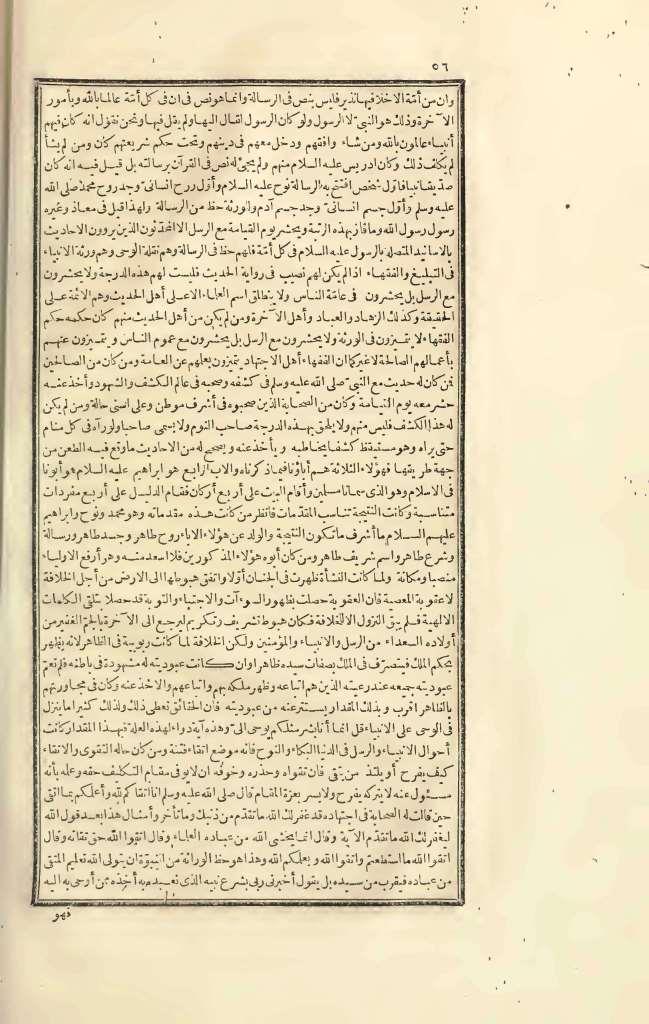 ٥٦
وان من أمّة الا خلا فيها نذير فليس بنص فى الرسالة وانما هو نص فى ان فى كل أمّة عالما بالله وبأمور
الآخرة وذلك هو النبىّ لا الرسول ولو كان الرسول لقال اليها ولم يقل فيها ونحن نقول انه كان فيهم
أنبياء عالمون بالله ومن شاء وافقهم ودخل معهم فى دينهم وتحت حكم شريعتهم كان ومن لم يشأ
لم يكلف ذلك وكان ادريس عليه السلام منهم ولم يجئ له نص فى القرآن برسالته بل قيل فيه انه كان
صدّيقا نبيا فاوّل شخص افتتح به الرسالة نوح عليه السلام وأوّل روح انسانىّ وجد روح محمد صلى الله
عليه وسلم وأوّل جسم انسانىّ وجد جسم آدم وللورثة حظ من الرسالة ولهذا قيل فى معاذ وغيره
رسول رسول الله وما فاز بهذه الرتبة ويحشر يوم القيامة مع الرسل الا المحدّثون الذين يروون الاحاديث
بالاسانيد المتصلة بالرسول عليه السلام فى كل أمّة فلهم حظ فى الرسالة وهم نقلة الوحى وهم ورثة الانبياء
فى التبليغ والفقهاء اذا لم يكن لهم نصيب فى رواية الحديث فليست لهم هذه الدرجة ولا يحشرون
مع الرسل بل يحشرون فى عامّة الناس ولا ينطلق اسم العلماء الا على أهل الحديث وهم الائمة على
الحقيقة وكذلك الزهاد والعباد وأهل الآخرة ومن لم يكن من أهل الحديث منهم كان حكمه حكم
الفقهاء لا يتميزون فى الورثة ولا يحشرون مع الرسل بل يحشرون مع عموم الناس ويتميزون عنهم
بأعمالهم الصالحة لا غير كما ان الفقهاء أهل الاجتهاد يتميزون بعلمهم عن العامة ومن كان من الصالحين
ممن كان له حديث مع النبىّ صلى الله عليه وسلم فى كشفه وصحبه فى عالم الكشف والشهود وأخذ عنه
حشر معه يوم القيامة وكان من الصحابة الذين صحبوه فى أشرف موطن وعلى اسنى حالة ومن لم يكن
له هذا الكشف فليس منهم ولا يلحق بهذه الدرجة صاحب النوم ولا يسمى صاحبا ولو رآه فى كل منام
حتى يراه وهو مستيقظ كشفا يخاطبه ويأخذ عنه ويصحح له من الاحاديث ما وقع فيه الطعن من
جهة طريقها فهؤلاء الثلاثة هم آباؤنا فيما ذكرناه والاب الرابع هو ابراهيم عليه السلام هو أبونا
فى الاسلام وهو الذى سمانا مسلمين وأقام البيت على أربع أركان فقام الدليل على أربع مفردات
متناسبة وكانت النتيجة تناسب المقدّمات فانظر من كانت هذه مقدماته وهو محمد ونوح وابراهيم
عليهم السلام ما أشرف ما تكون النتيجة والولد عن هؤلاء الاباء روح طاهر وجسد طاهر ورسالة
وشرع طاهر واسم شريف طاهر ومن كان أبوه هؤلاء المذكورين فلا اسعد منه وهو أرفع الاولياء
منصبا ومكانة ولما كانت النشأة ظهرت فى الجنان أوّلا واتفق هبوطها الى الارض من أجل الخلافة
لا عقوبة المعصية فان العقوبة حصلت بظهور السوءآت والاجتباء والتوبة قد حصلا بتلقى الكلمات
الالهية فلم يبق النزول الا للخلافة فكان هبوط تشريف وتكريم ليرجع الى الآخرة بالجمّ الغفير من
أولاده السعداء من الرسل والانبياء والمؤمنين ولكن الخلافة لما كانت ربوبية فى الظاهر لانه يظهر
بحكم الملك فيتصرّف فى الملك بصفات سيده ظاهرا وان كانت عبوديته له مشهودة فى باطنه فلم تعمّ
عبوديته جميعه عند رعيته الذين هم اتباعه وظهر ملكه بهم وباتباعهم والاخذ عنه وكان فى مجاورتهم
بالظاهر أقرب وبذلك المقدار يستتر عنه من عبوديته فان الحقائق تعطى ذلك ولذلك كثيرا ما ينزل
فى الوحى على الانبياء قل انما أنا بشر مثلكم يوحى الىّ وهذه آية دواء لهذه العلة فبهذا المقدار كانت
أحوال الانبياء والرسل فى الدنيا البكاء والنوح فانه موضع اتقاء فتنة ومن كان حاله التقوى والاتقاء
كيف يفرح أو يلتذ من يتقى فان تقواه وحذره وخوفه ان لا يوفى مقام التكليف حقه وعلمه بأنه
مسئول عنه لا يتركه يفرح ولا يسر بعزة المقام قال صلى الله عليه وسلم انا اتقاكم لله وأعلمكم بما اتقى
حين قالت له الصحابة فى اجتهاده قد غفر لك الله ما تقدّم من ذنبك وما تأخر وأمثال هذا بعد قول الله
ليغفر لك الله ما تقدّم الآية وقال انما يخشى الله من عباده العلماء وقال اتقوا الله حق تقاته وقال
اتقوا الله ما استطعتم واتقوا الله ويعلمكم الله وهذا هو حظ الوراثة من النبوّة ان يتولى الله تعليم المتقى
من عباده فيقرب من سيده بل يقول أخبرنى ربى بشرع نبيه الذى تعبده به أخذه ممن أوحى به اليه
فهو